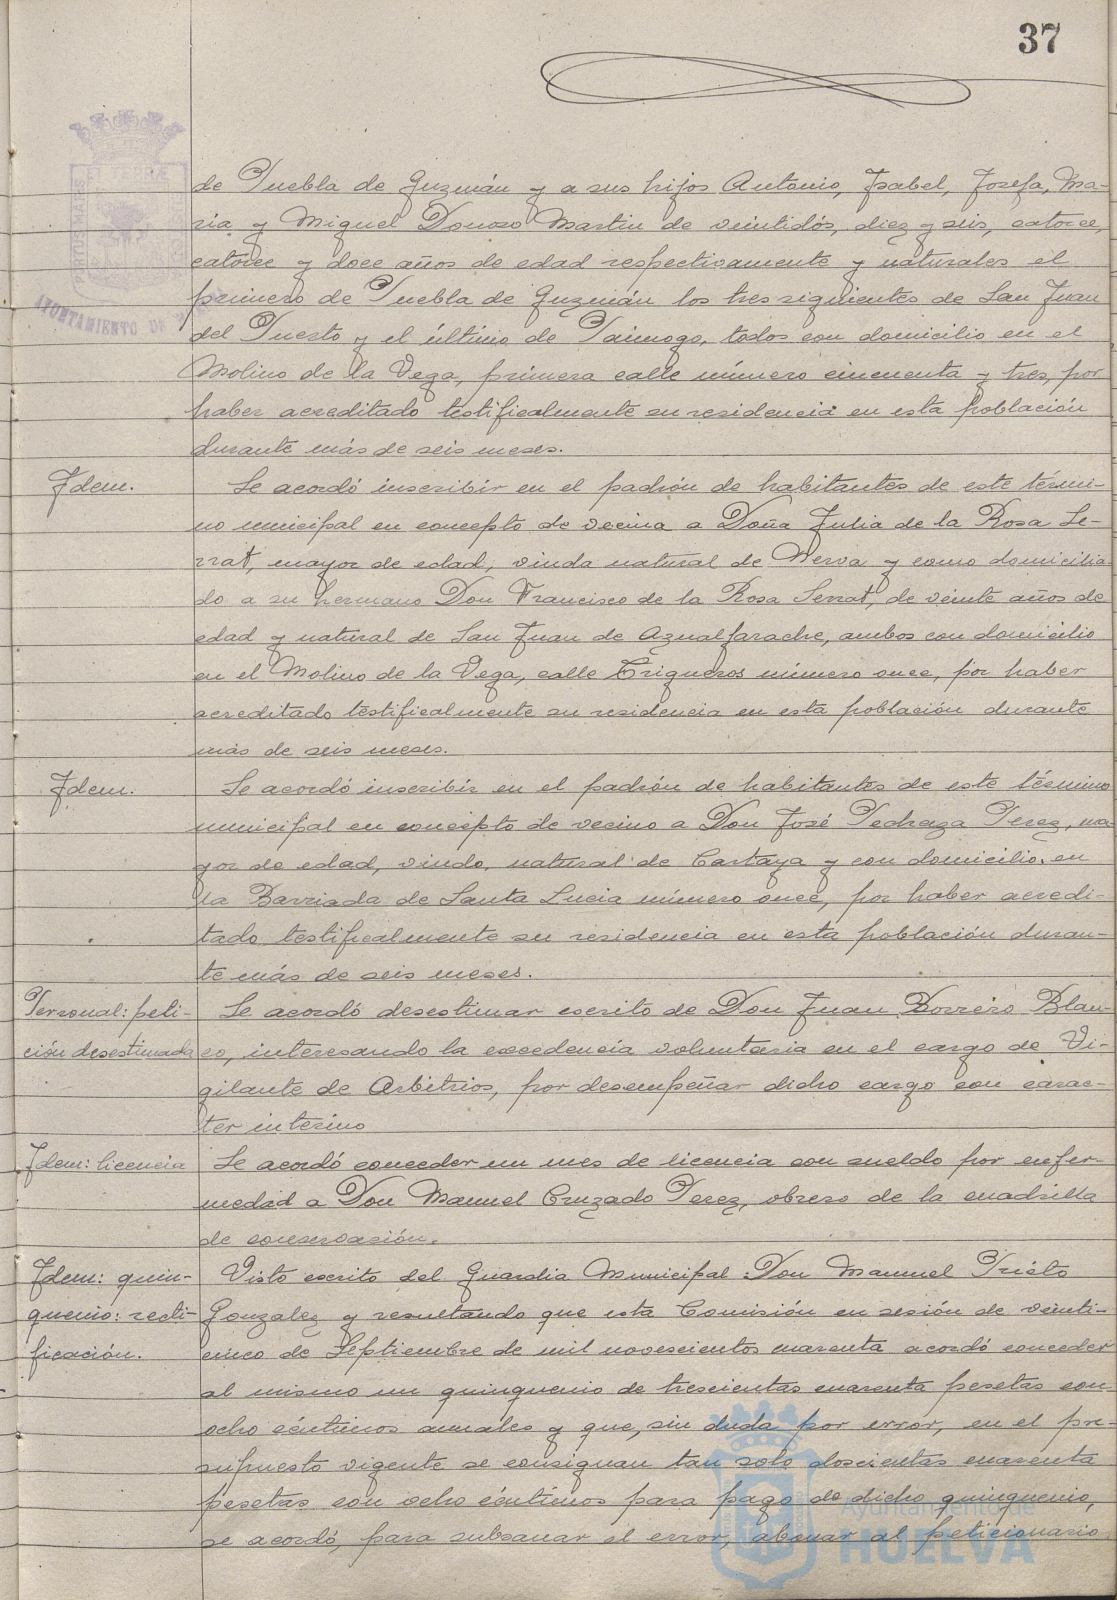 37
de Puebla de Guzmán y a sus hijos Antonio, Isabel, Josefa, Ma-
ria y Miguel Donoso Martin de veintidós, diez y seis, catorce,
catorce y doce años de edad respectivamente y naturales el
primero de Puebla de Guzmán los tres siguientes de San Juan
del Puerto y el último de Paimogo, todos con domicilio en el
Molino de la Vega, primera calle número cincuenta y tres, por
haber acreditado testificalmente su residencia en esta población
durante más de seis meses.
Idem.
Se acordó inscribir en el padrón de habitantes de este térmi-
no municipal en concepto de vecina a Doña Julia de la Rosa Se-
rrat, mayor de edad, viuda natural de Nerva y como domicilia-
do a su hermano Don Francisco de la Rosa Serrat, de veinte años de
edad y natural de San Juan de Aznalfarache, ambos con domicilio
en el Molino de la Vega, calle Trigueros número once, por haber
acreditado testificalmente su residencia en esta población durante
más de seis meses.
Idem.
Se acordó inscribir en el padrón de habitantes de este término
municipal en concepto de vecino a Don José Pedraza Perez, ma-
yor de edad, viudo, natural de Cartaya y con domicilio en
la Barriada de Santa Lucia número once, por haber acredi-
tado testificalmente su residencia en esta población duran-
te más de seis meses.
Personal: peti-
ción desestimada
Se acordó desestimar escrito de Don Juan Borrero Blan-
co, interesando la excedencia voluntaria en el cargo de Vi-
gilante de Arbitrios, por desempeñar dicho cargo con carac-
ter interino
Idem: licencia
Se acordó conceder un mes de licencia con sueldo por enfer-
medad a Don Manuel Cruzado Perez, obrero de la cuadrilla
de conservación.
Idem: quin-
quenio: recti-
ficación.
Visto escrito del Guardia Municipal Don Manuel Prieto
Gonzalez y resultando que esta Comisión en sesión de veinti-
cinco de Septiembre de mil novescientos cuarenta acordó conceder
al mismo un quinquenio de trescientas cuarenta pesetas con
ocho céntimos anuales y que, sin duda por error, en el pre-
supuesto vigente se consignan tan solo doscientas cuarenta
pesetas con ocho céntimos para pago de dicho quinquenio,
se acordó, para subsanar el error, abonar al peticionario
PORTUS MARIS
ET TERRAE
AYUNTAMIENTO DE
Ayuntamiento de
HUELVA